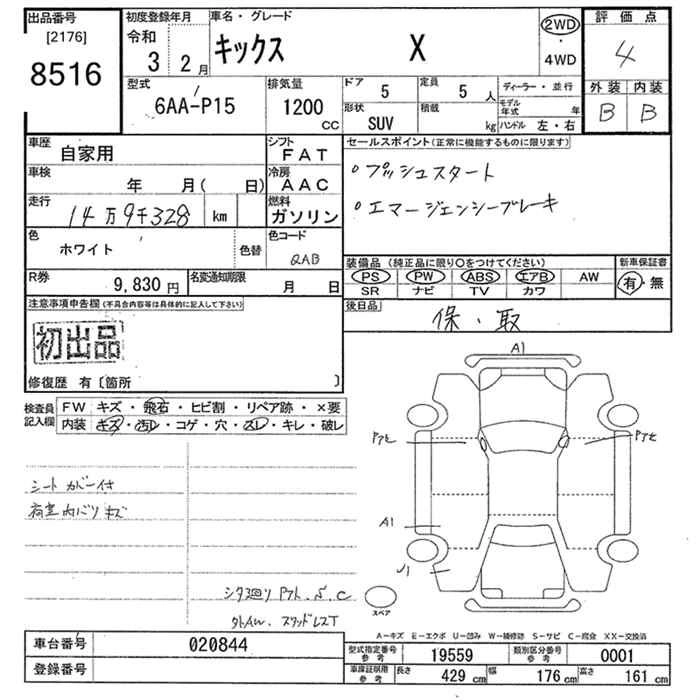 出品番号
[2176]
8516
初度登録年月
令和
3 2月
車名・グレード
キックス X
2WD
・
4WD
評価点
4
型式
6AA-P15
排気量
1200
CC
ドア
5
定員
5 人
形状
SUV
積載
kg
ディーラー・並行
モデル年式 年
ハンドル 左・右
外装 内装
B B
車歴
自家用
シフト
FAT
車検
年 月( 日)
冷房
AAC
走行
14万9千328 km
燃料
ガソリン
色
ホワイト
色替
色コード
QAB
R券
9,830 円
名変通知期限
月 日
セールスポイント(正常に機能するものに限ります)
・プッシュスタート
・エマージェンシーブレーキ
装備品(純正品に限り○をつけてください)
PS PW ABS エアB AW
SR ナビ TV カワ
新車保証書
有・無
後日品
保・取
注意事項申告欄(不具合内容等は具体的に記入して下さい)
初出品
修復歴 有〔箇所 〕
検査員
記入欄
FW キズ・飛石・ヒビ割・リペア跡・×要
内装 キズ・汚レ・コゲ・穴・スレ・キレ・破レ
シートカバー付
荷室内バリキズ
シタ廻り Pアト. S. C
A1
Pアセ
Pアセ
A1
U1
スペア
A-キズ E-エクボ U-凹み W-補修跡 S-サビ C-腐食 XX-交換済
車台番号
020844
登録番号
型式指定番号
参考
19559
類別区分番号
参考
0001
車庫証明用
参考
長さ
429 cm
幅
176 cm
高さ
161 cm